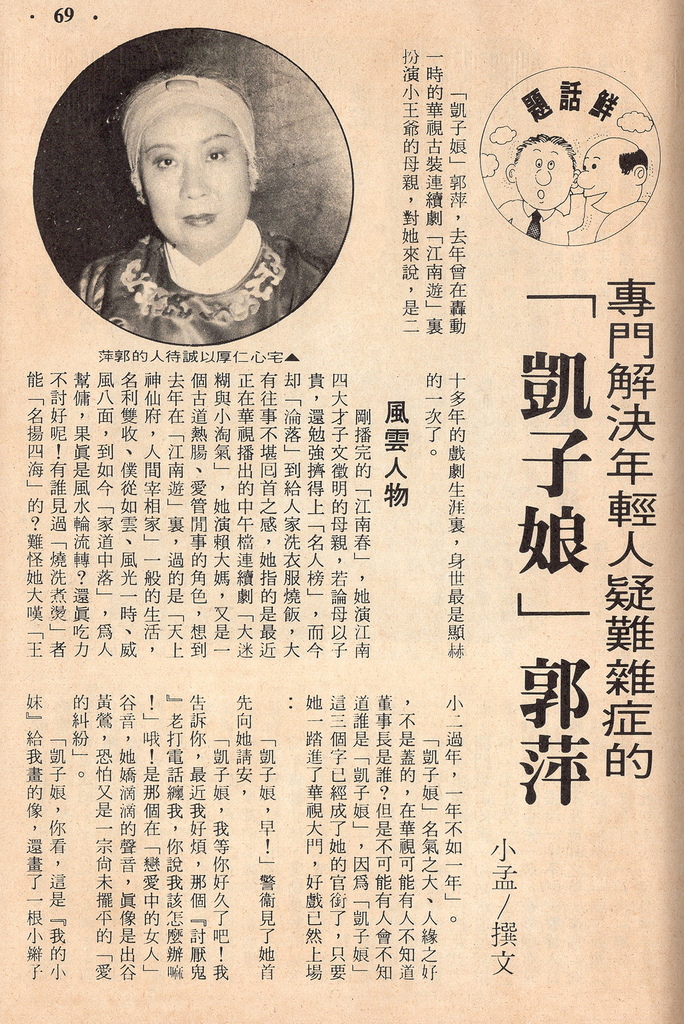 · 69 ·
鮮話題
專門解決年輕人疑難雜症的
「凱子娘」郭萍
小孟／撰文
「凱子娘」郭萍，去年曾在轟動
一時的華視古裝連續劇「江南遊」裏
扮演小王爺的母親，對她來說，是二
▲宅心仁厚以誠待人的郭萍
十多年的戲劇生涯裏，身世最是顯赫
的一次了。
風雲人物
剛播完的「江南春」，她演江南
四大才子文徵明的母親，若論母以子
貴，還勉強擠得上「名人榜」，而今
却「淪落」到給人家洗衣服燒飯，大
有往事不堪回首之感，她指的是最近
正在華視播出的中午檔連續劇「大迷
糊與小淘氣」，她演賴大媽，又是一
個古道熱腸、愛管閒事的角色，想到
去年在「江南遊」裏，過的是「天上
神仙府，人間宰相家」一般的生活，
名利雙收、僕從如雲、風光一時、威
風八面，到如今「家道中落」，爲人
幫傭，果眞是風水輪流轉？還眞吃力
不討好呢！有誰見過「燒洗煮燙」者
能「名揚四海」的？難怪她大嘆「王
小二過年，一年不如一年」。
「凱子娘」名氣之大、人緣之好
，不是蓋的，在華視可能有人不知道
董事長是誰？但是不可能有人會不知
道誰是「凱子娘」，因爲「凱子娘」
這三個字已經成了她的官銜了，只要
她一踏進了華視大門，好戲已然上場
：
「凱子娘，早！」警衞見了她首
先向她請安，
「凱子娘，我等你好久了吧！我
告訴你，最近我好煩，那個『討厭鬼
』老打電話纏我，你說我該怎麼辦嘛
！」哦！是那個在「戀愛中的女人」
谷音，她嬌滴滴的聲音，眞像是出谷
黃鶯，恐怕又是一宗尙未擺平的「愛
的糾紛」。
「凱子娘，你看，這是『我的小
妹』給我畫的像，還畫了一根小辮子